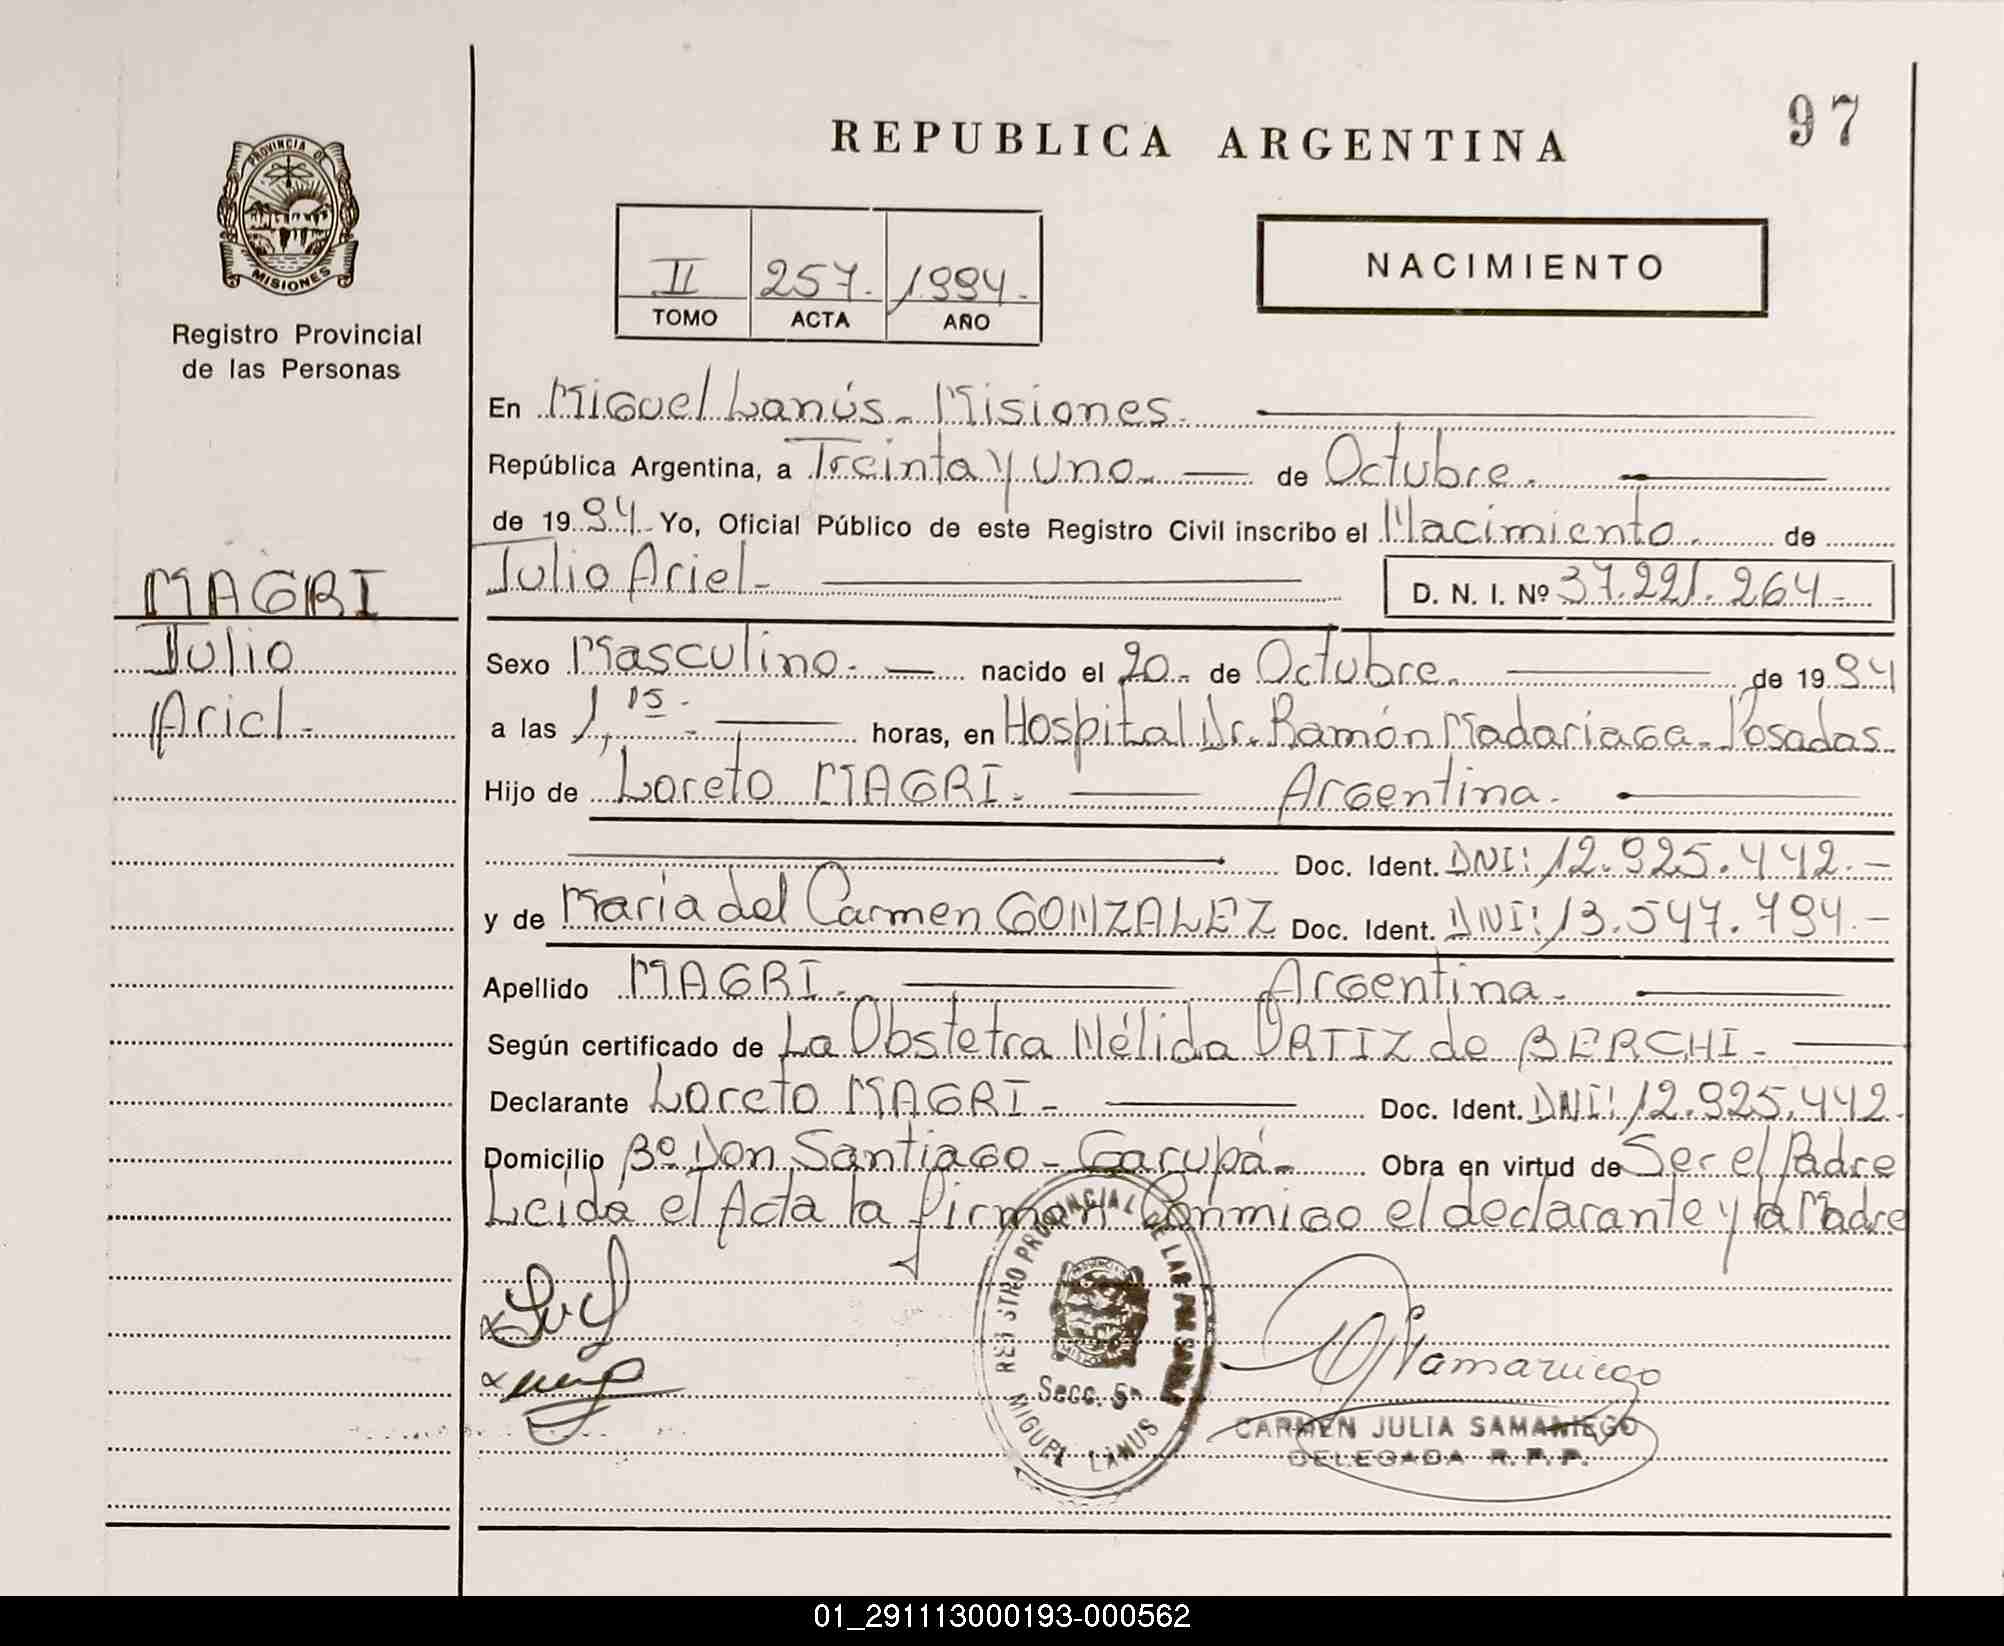 REPUBLICA ARGENTINA
97
PROVINCIA DE
MISIONES
Registro Provincial
de las Personas
II 257. 1994.
TOMO ACTA AÑO
NACIMIENTO
En Miguel Lanús - Misiones.
República Argentina, a Treinta y Uno. — de Octubre.
de 1994. Yo, Oficial Público de este Registro Civil inscribo el Nacimiento. de
Julio Ariel - D. N. I. Nº 37.221.264 -
MAGRI
Julio
Ariel -
Sexo Masculino. — nacido el 20 - de Octubre. de 1994
a las 1,15 - horas, en Hospital Dr. Ramón Madariaga - Posadas
Hijo de Loreto MAGRI. — Argentina.
Doc. Ident. DNI: 12.925.442. -
y de María del Carmen GONZALEZ Doc. Ident. DNI: 13.547.794. -
Apellido MAGRI. — Argentina.
Según certificado de La Obstetra Nélida ORTIZ de BERCHI -
Declarante Loreto MAGRI - Doc. Ident. DNI: 12.925.442.
Domicilio Bº Don Santiago - Garupá - Obra en virtud de Ser el Padre
Leida el Acta la firman Conmigo el declarante y la Madre
REGISTRO PROVINCIAL DE LAS PERSONAS
Secc. 5ª
MIGUEL LANUS
Samaniego
CARMEN JULIA SAMANIEGO
DELEGADA R.P.P.
01_291113000193-000562